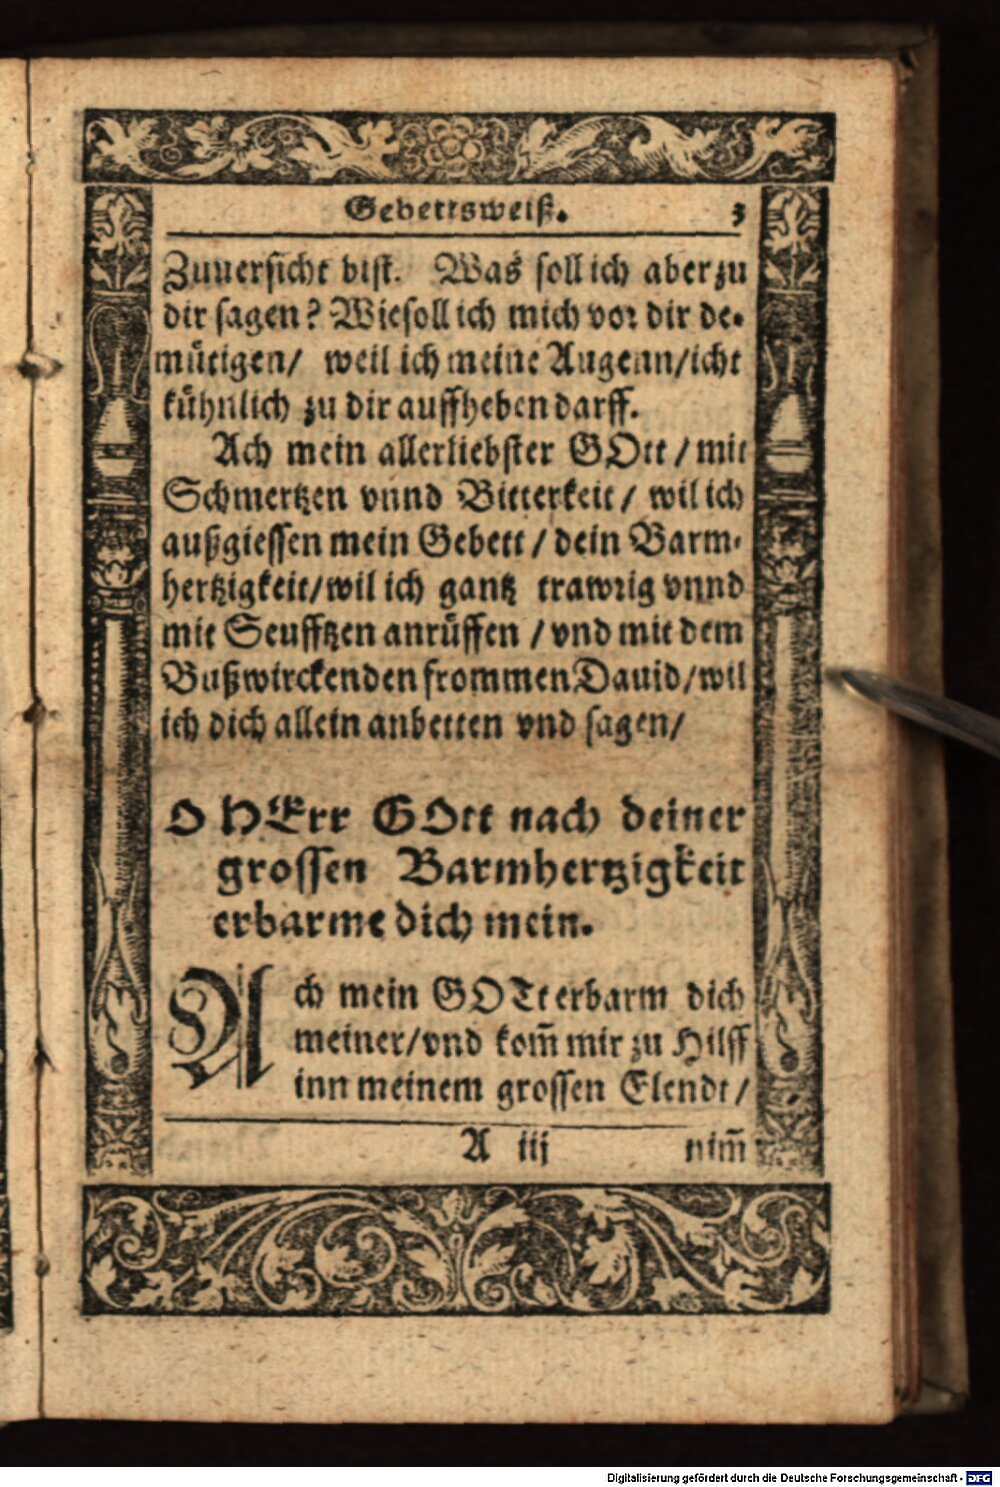 Gebettsweiß. 3
Zuuersicht bist. Was soll ich aber zu
dir sagen? Wie soll ich mich vor dir de-
mütigen/ weil ich meine Augenn/icht
kühnlich zu dir auffheben darff.
Ach mein allerliebster GOtt / mit
Schmertzen vnnd Bitterkeit / wil ich
außgiessen mein Gebett / dein Barm-
hertzigkeit/wil ich gantz trawrig vnnd
mit Seufftzen anrüffen / vnd mit dem
Bußwirckenden frommen Dauid/wil
ich dich allein anbetten vnd sagen/
O HErr GOtt nach deiner
grossen Barmhertzigkeit
erbarme dich mein.
Ach mein GOTt erbarm dich
meiner/vnd kom̃ mir zu Hilff
inn meinem grossen Elendt/
A iij nim̃
Digitalisierung gefördert durch die Deutsche Forschungsgemeinschaft - DFG